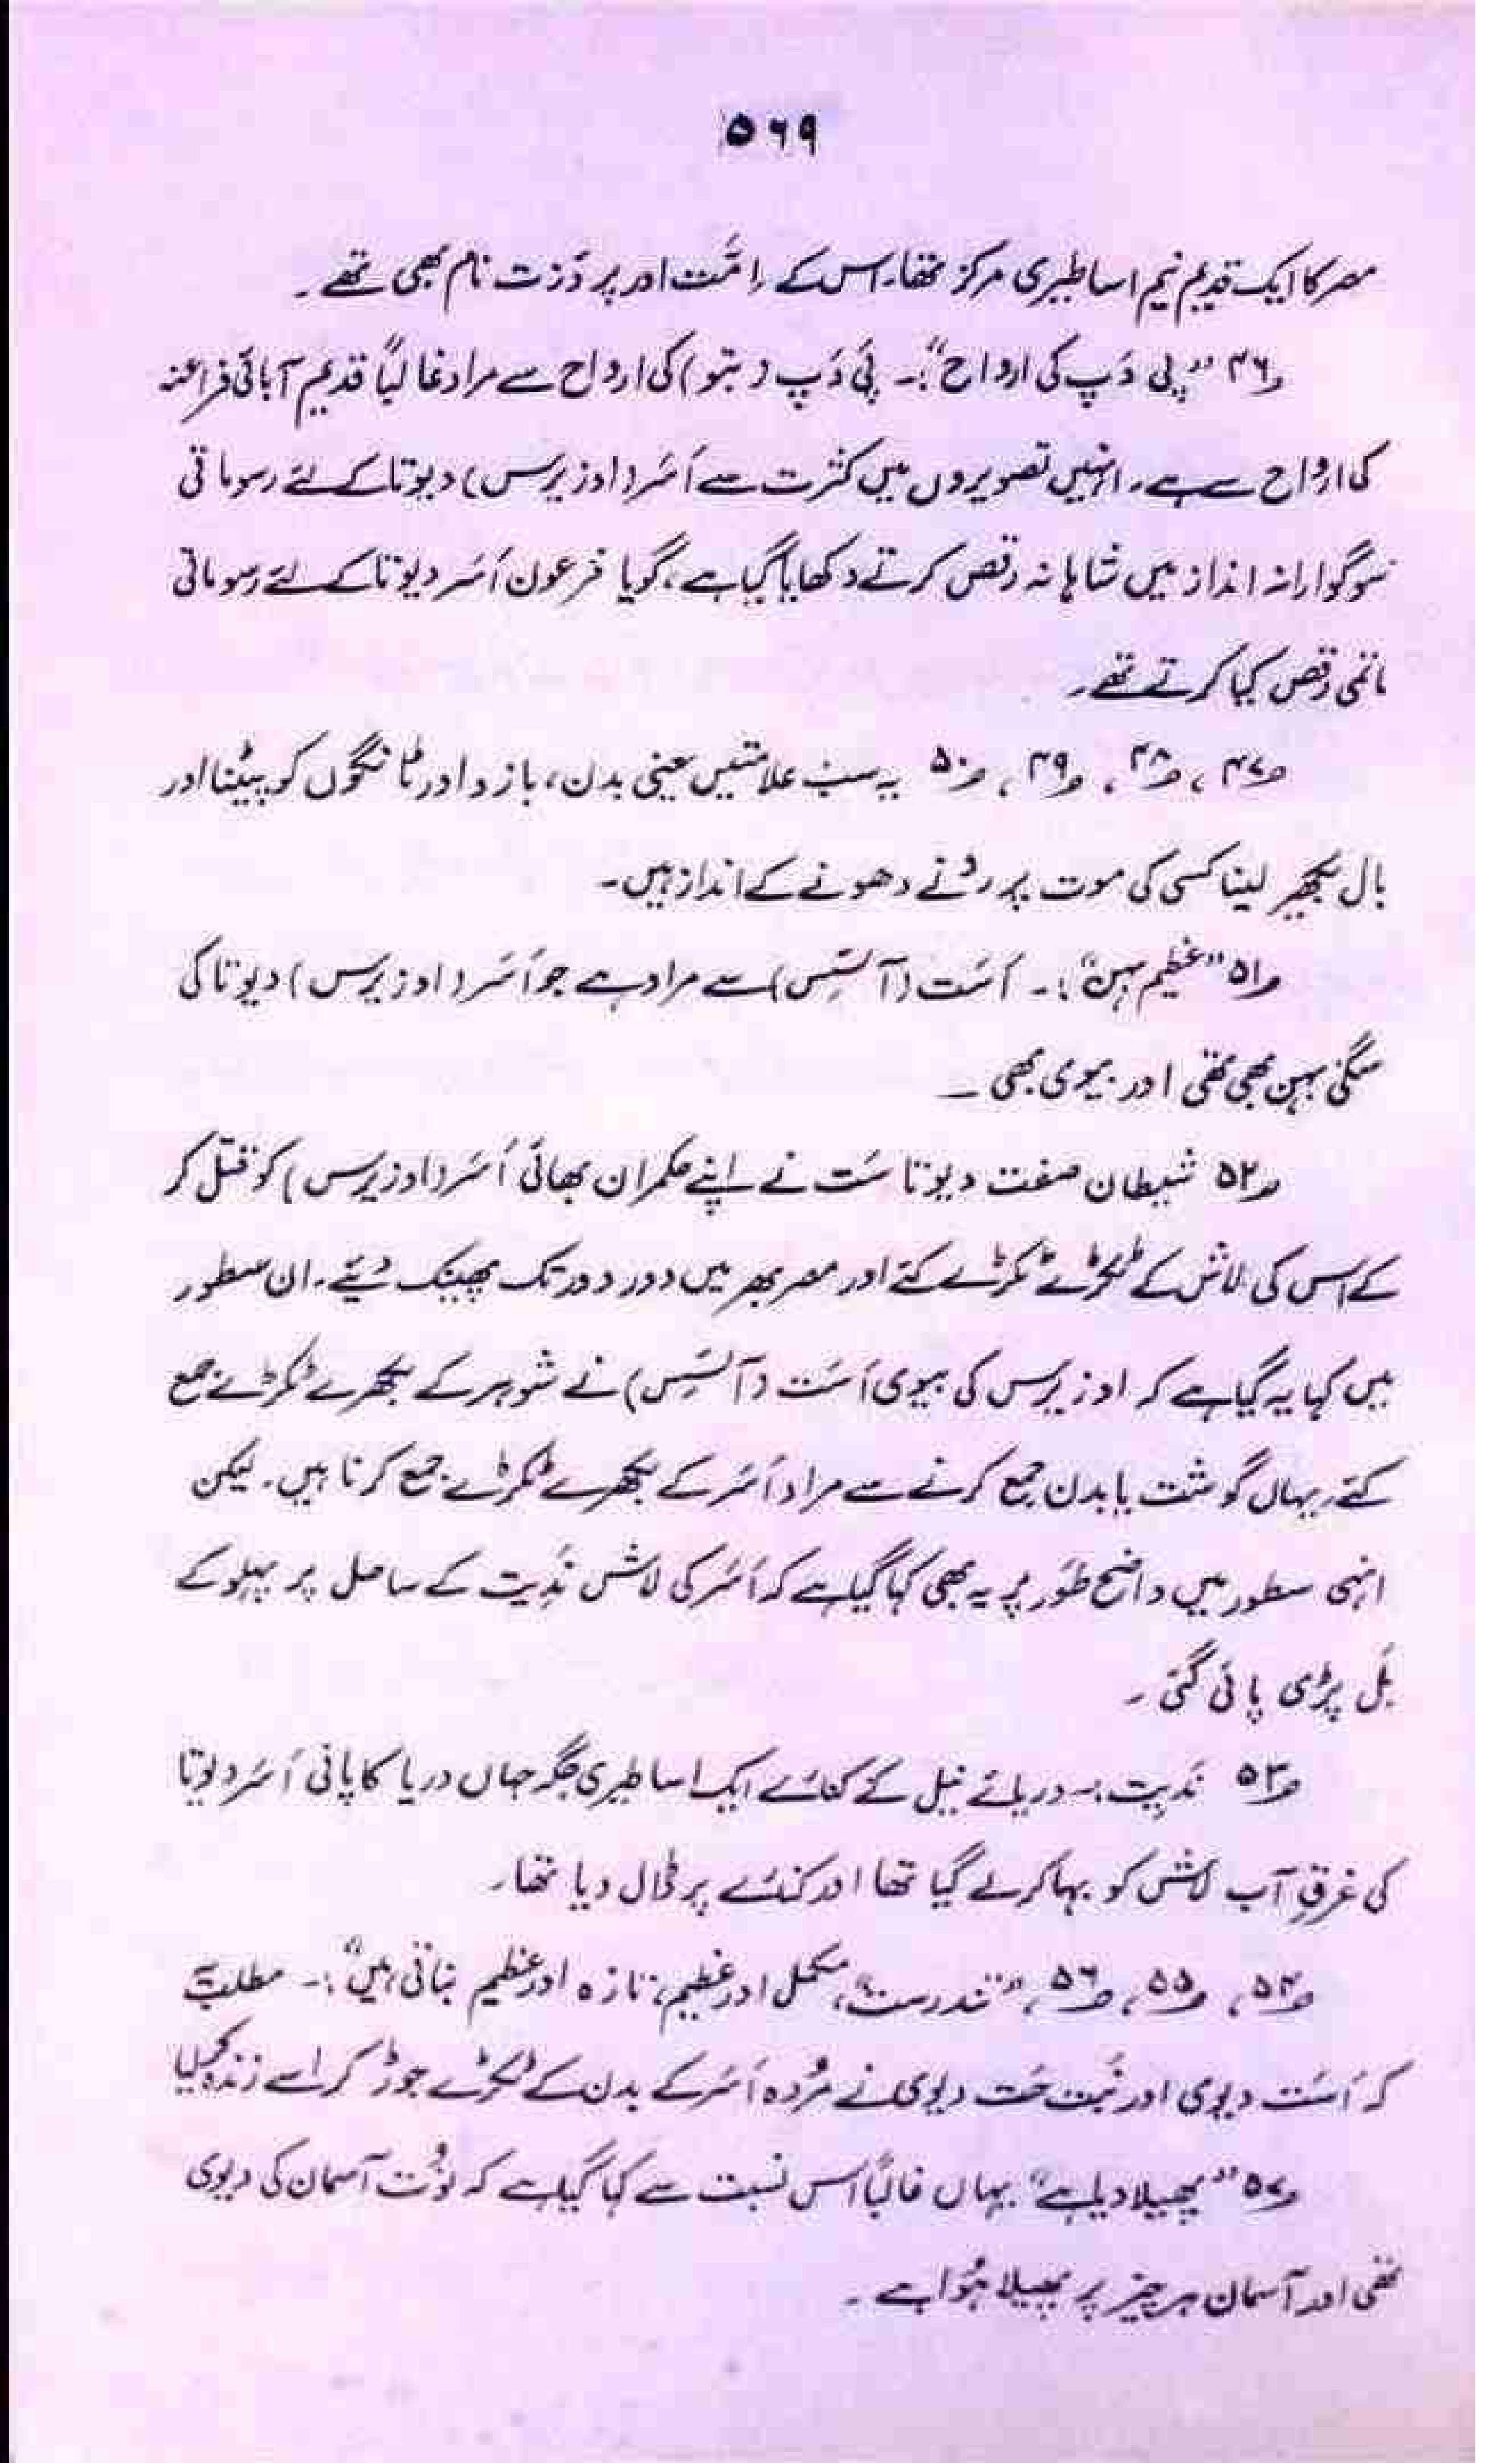 ۵۶۹
مصر کا ایک قدیم نیم اساطیری مرکز تھا۔ اس کے اِمَت اور پر وَزت نام بھی تھے۔
؃۴۶ ”پی دَپ کی ارواح“:۔ پَی دَپ (بتو) کی ارواح سے مراد غالباً قدیم آبائی فراعنہ
کی ارواح سے ہے۔ انہیں تصویروں میں کثرت سے اَسَر (اوزیرس) دیوتا کے لئے رسوماتی
سوگوارانہ انداز میں شاہانہ رقص کرتے دکھایا گیا ہے، گویا فرعون اَسَر دیوتا کے لئے رسوماتی
ماتمی رقص کیا کرتے تھے۔
؃۴۷، ؃۴۸، ؃۴۹، ؃۵۰ یہ سب علامتیں یعنی بدن، بازو اور ٹانگوں کو پیٹنا اور
بال بکھیر لینا کسی کی موت پر رونے دھونے کے انداز ہیں۔
؃۵۱ ”عظیم بہن“:۔ اَسَت (آئسِس) سے مراد ہے جو اَسَر (اوزیرس) دیوتا کی
سگی بہن بھی تھی اور بیوی بھی ۔
؃۵۲ شیطان صفت دیوتا سَت نے اپنے حکمران بھائی اَسَر (اوزیرس) کو قتل کر
کے اس کی لاش کے ٹکڑے ٹکڑے کئے اور مصر بھر میں دور دور تک پھینک دیئے۔ ان سطور
میں کہا یہ گیا ہے کہ اوزیرس کی بیوی اَسَت (آئسِس) نے شوہر کے بکھرے ٹکڑے جمع
کئے۔ یہاں گوشت یا بدن جمع کرنے سے مراد اَسَر کے بکھرے ٹکڑے جمع کرنا ہیں۔ لیکن
انہی سطور میں واضح طور پر یہ بھی کہا گیا ہے کہ اَسَر کی لاش نَدِیت کے ساحل پر پہلو کے
بَل پڑی پائی گئی ۔
؃۵۳ نَدِیت :۔ دریائے نیل کے کنارے ایک اساطیری جگہ جہاں دریا کا پانی اَسَر دیوتا
کی غرقِ آب لاش کو بہا کر لے گیا تھا اور کنارے پر ڈال دیا تھا۔
؃۵۴، ؃۵۵، ؃۵۶، ”تندرست، مکمل اور عظیم، تازہ اور عظیم بناتی ہیں“:۔ مطلب یہ
کہ اَسَت دیوی اور نَبت حَت دیوی نے مُردہ اَسَر کے بدن کے ٹکڑے جوڑ کر اسے زندہ کر لیا
؃۵۷ ”پھیلا دیا ہے“ یہاں غالباً اس نسبت سے کہا گیا ہے کہ نُوت آسمان کی دیوی
تھی اور آسمان ہر چیز پر پھیلا ہُوا ہے ۔